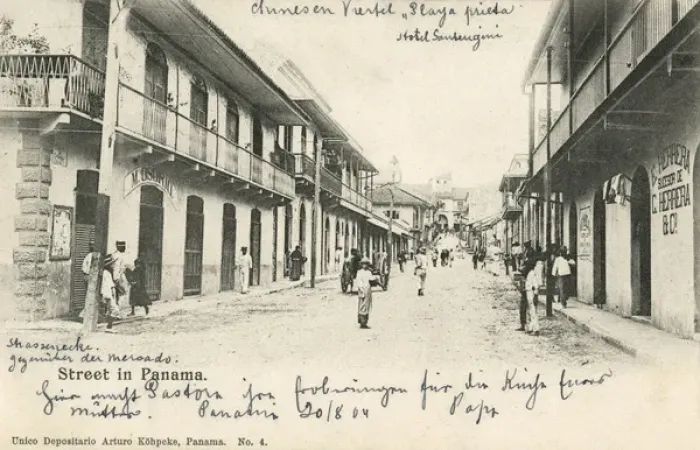 Chinesen Viertel „Playa prieta"
Hotel Santengini
M. OSORIO
HERRERA
SUCESOR DE
C. HERRERA
& Co.
Strassenecke.
gegenüber der Mercado.
Street in Panama.
Hier macht Pastora ihre Eroberungen für die Küche Eurer
Mutter. Panama 20/8 04 Papa
Unico Depositario Arturo Köhpcke, Panama. No. 4.